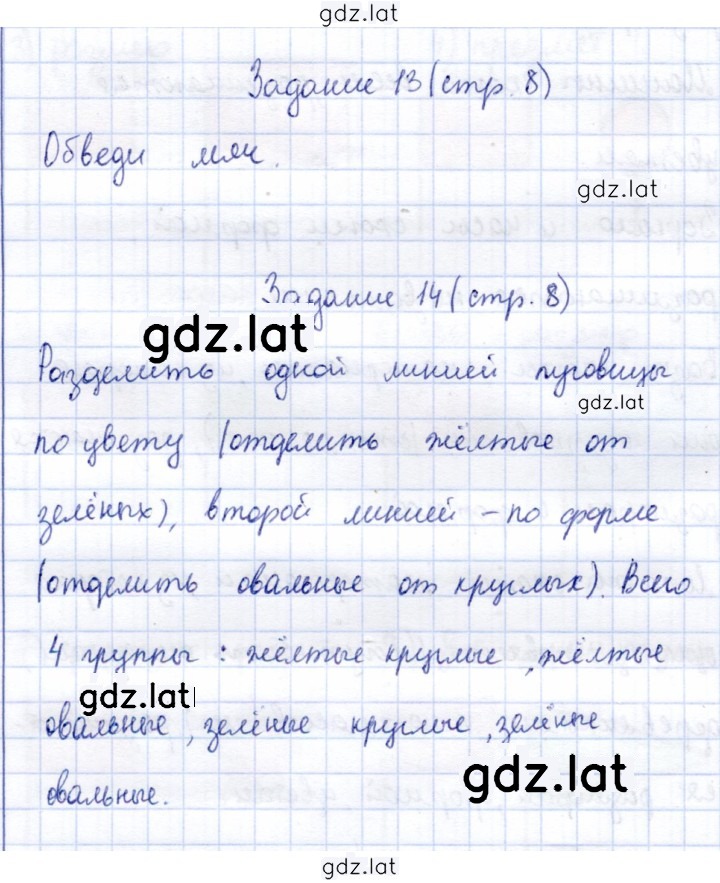 gdz.lat
Задание 13 (стр. 8)
Обведи мяч.
gdz.lat
Задание 14 (стр. 8)
gdz.lat
Разделить одной линией пуговицы
gdz.lat
по цвету (отделить жёлтые от
зелёных), второй линией – по форме
(отделить овальные от круглых). Всего
4 группы: жёлтые круглые, жёлтые
gdz.lat
овальные, зелёные круглые, зелёные
gdz.lat
овальные.
gdz.lat